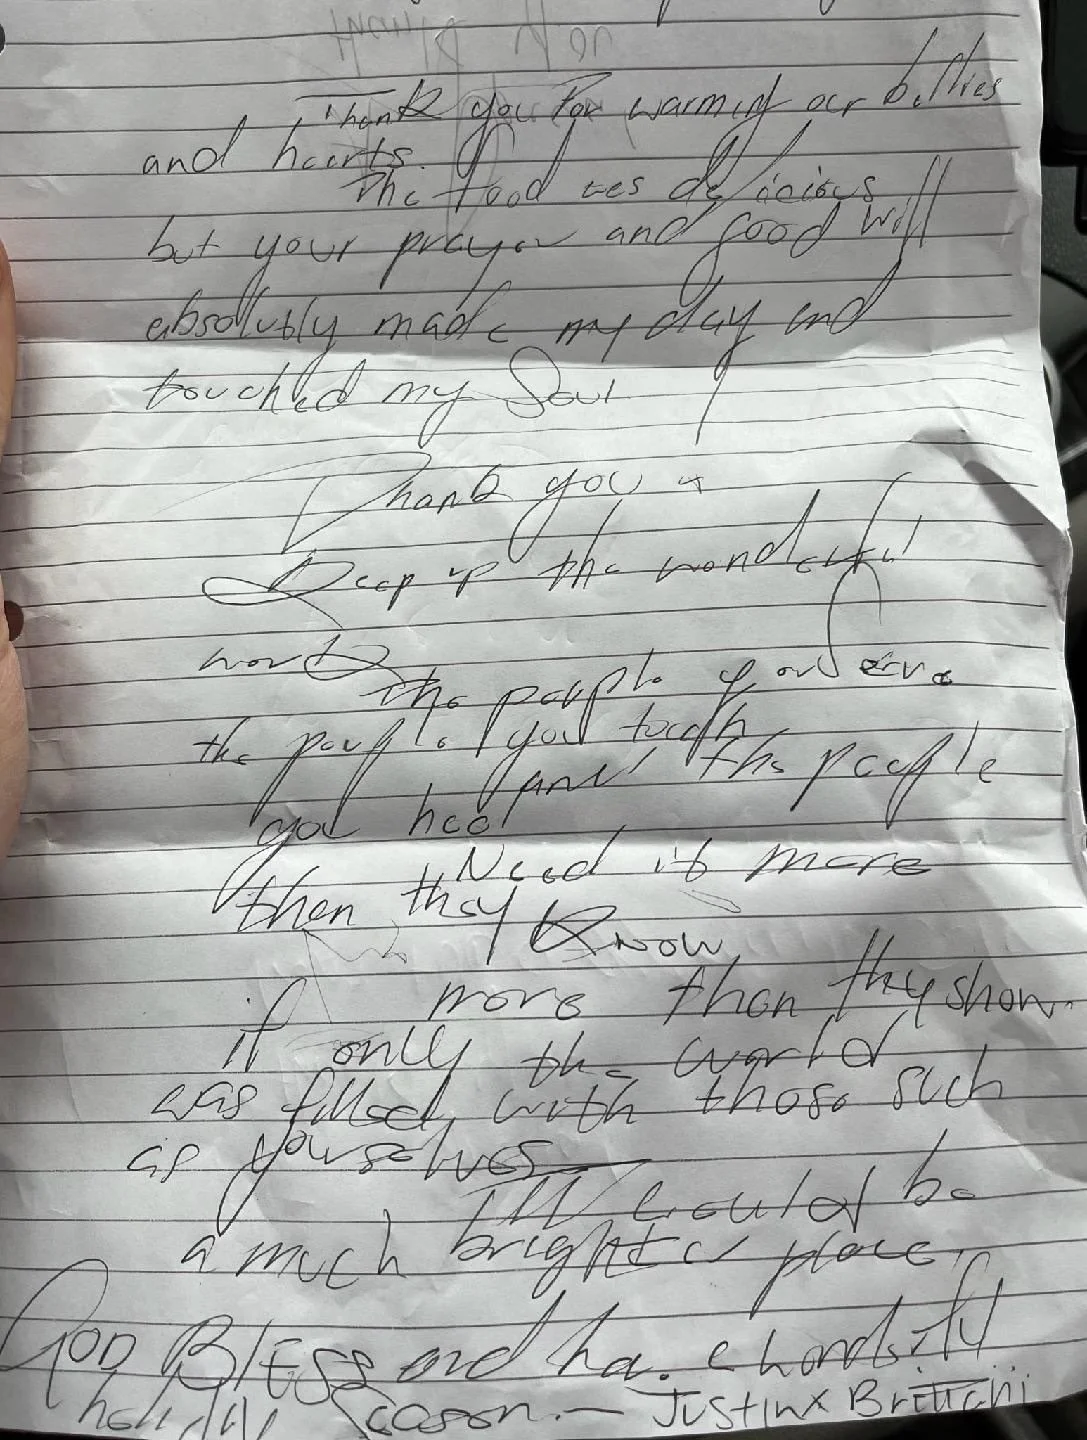 Thank you For warming our bellies
and hearts.
The food was delicious
but your prayer and good will
absolutely made my day and
touched my Soul
Thank you &
Keep up the wonderful
work
the people you serve
the people you touch
and the people
you heal
Need it more
then they Know
more than they show.
if only the world
was filled with those such
as yourselves
it would be
a much brighter place.
GOD BLESS and have a
holiday season. — Justin & Brittani